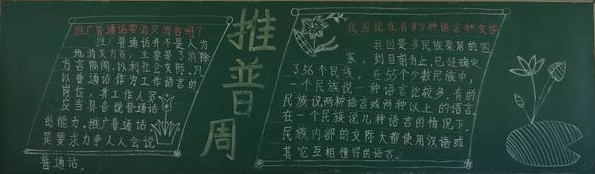 推广普通话要消灭方言吗？
推广普通话并不是人为
地消灭方言，主要是为消除
方言隔阂，以利社会交际。凡
以普通话作为工作语言的
岗位，其工作人员
应当具备说普通话
的能力。推广普通话
是要求力争人人会说
普通话。
推普周
我国现在有多少种语言和文字
我国是多民族聚居的国
家，到目前为止，已经确定
了56个民族。在55个少数民族中，
一个民族说一种语言比较多，有的
民族说两种语言或两种以上的语言。
在一个民族说几种语言的情况下，
民族内部的交际大都使用汉语或
其它互相懂得的语言。